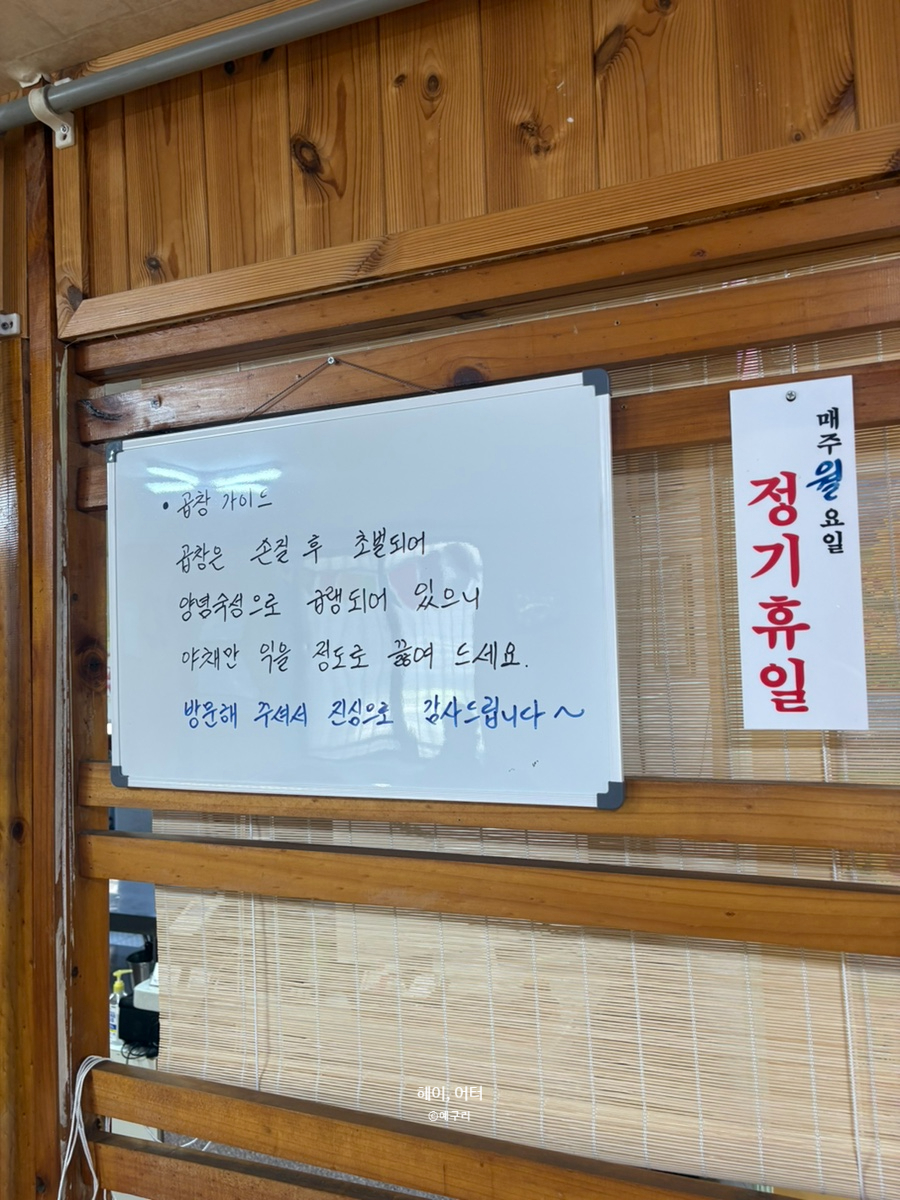 • 곱창 가이드
곱창은 손질 후 초벌되어
양념숙성으로 급랭되어 있으니
야채만 익을 정도로 끓여 드세요.
방문해 주셔서 진심으로 감사드립니다~
매주 월요일
정기휴일
헤이, 어터
©예구리